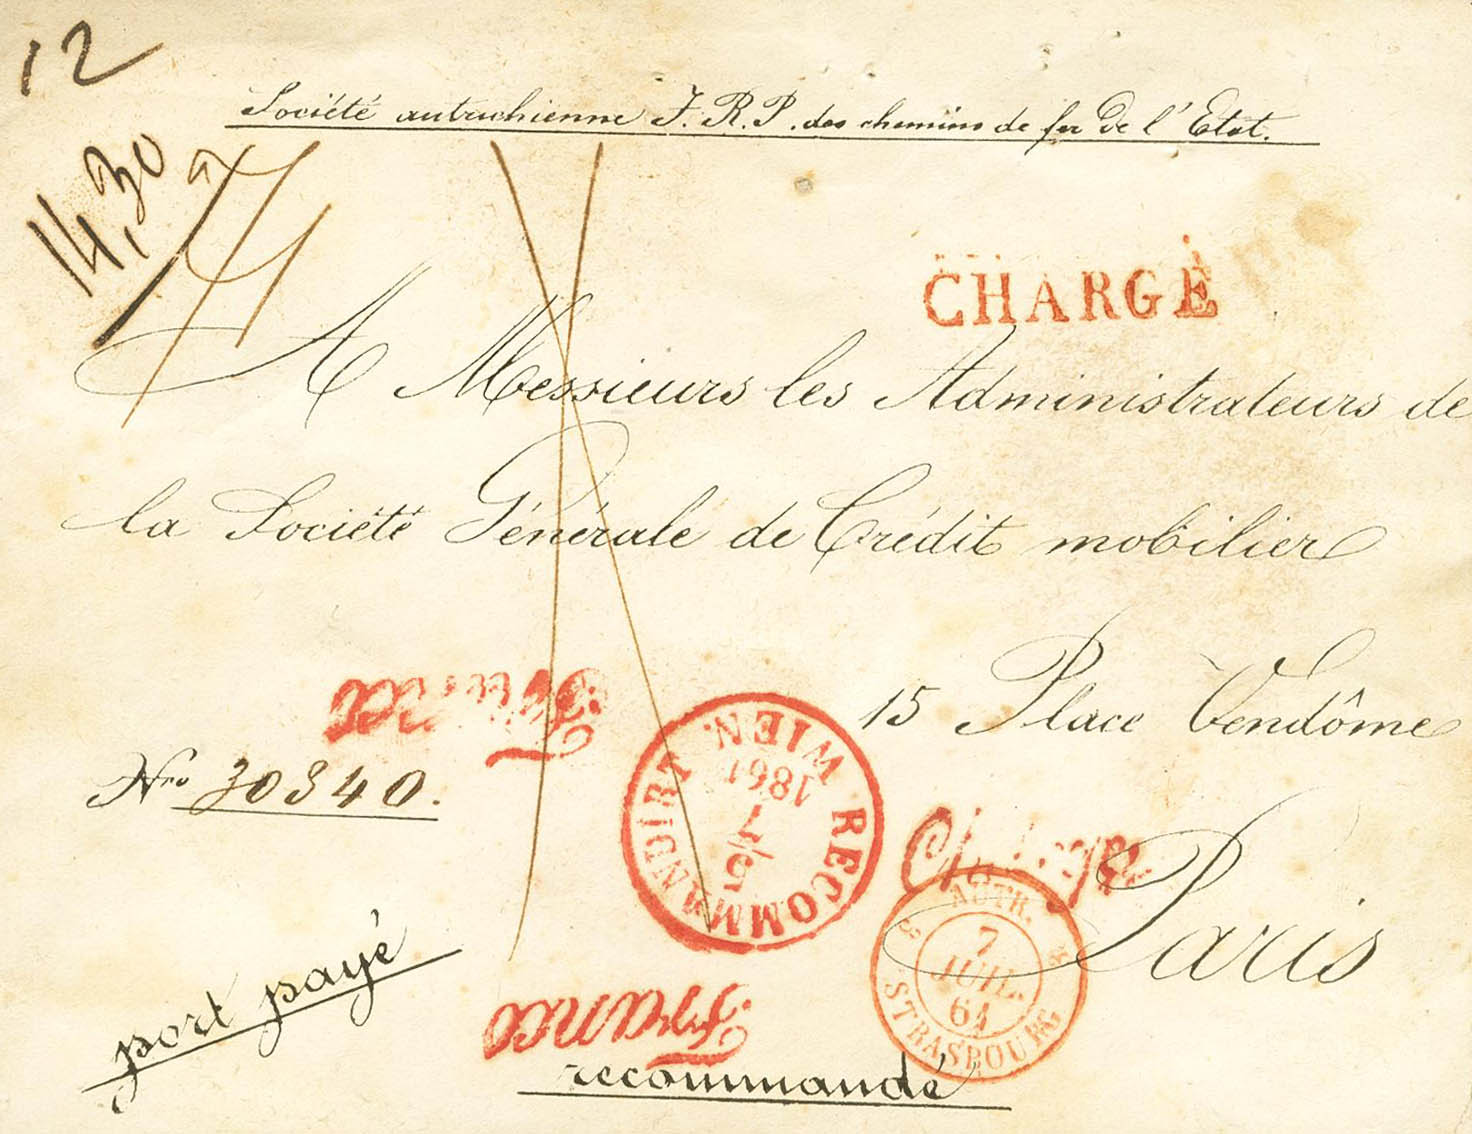 12
Société autrichienne J. R. P. des chemins de fer de l'Etat.
14,30
CHARGÉ
A Messieurs les Administrateurs de
la Société Générale de Crédit mobilier
15 Place Vendôme
Paris
Franco
Nro 30340.
RECOMMANDIRT WIEN
1861
5/7
Charge
AUTR.
3 3
7
JUIL.
61
STRASBOURG
port payé
Franco
recommandé